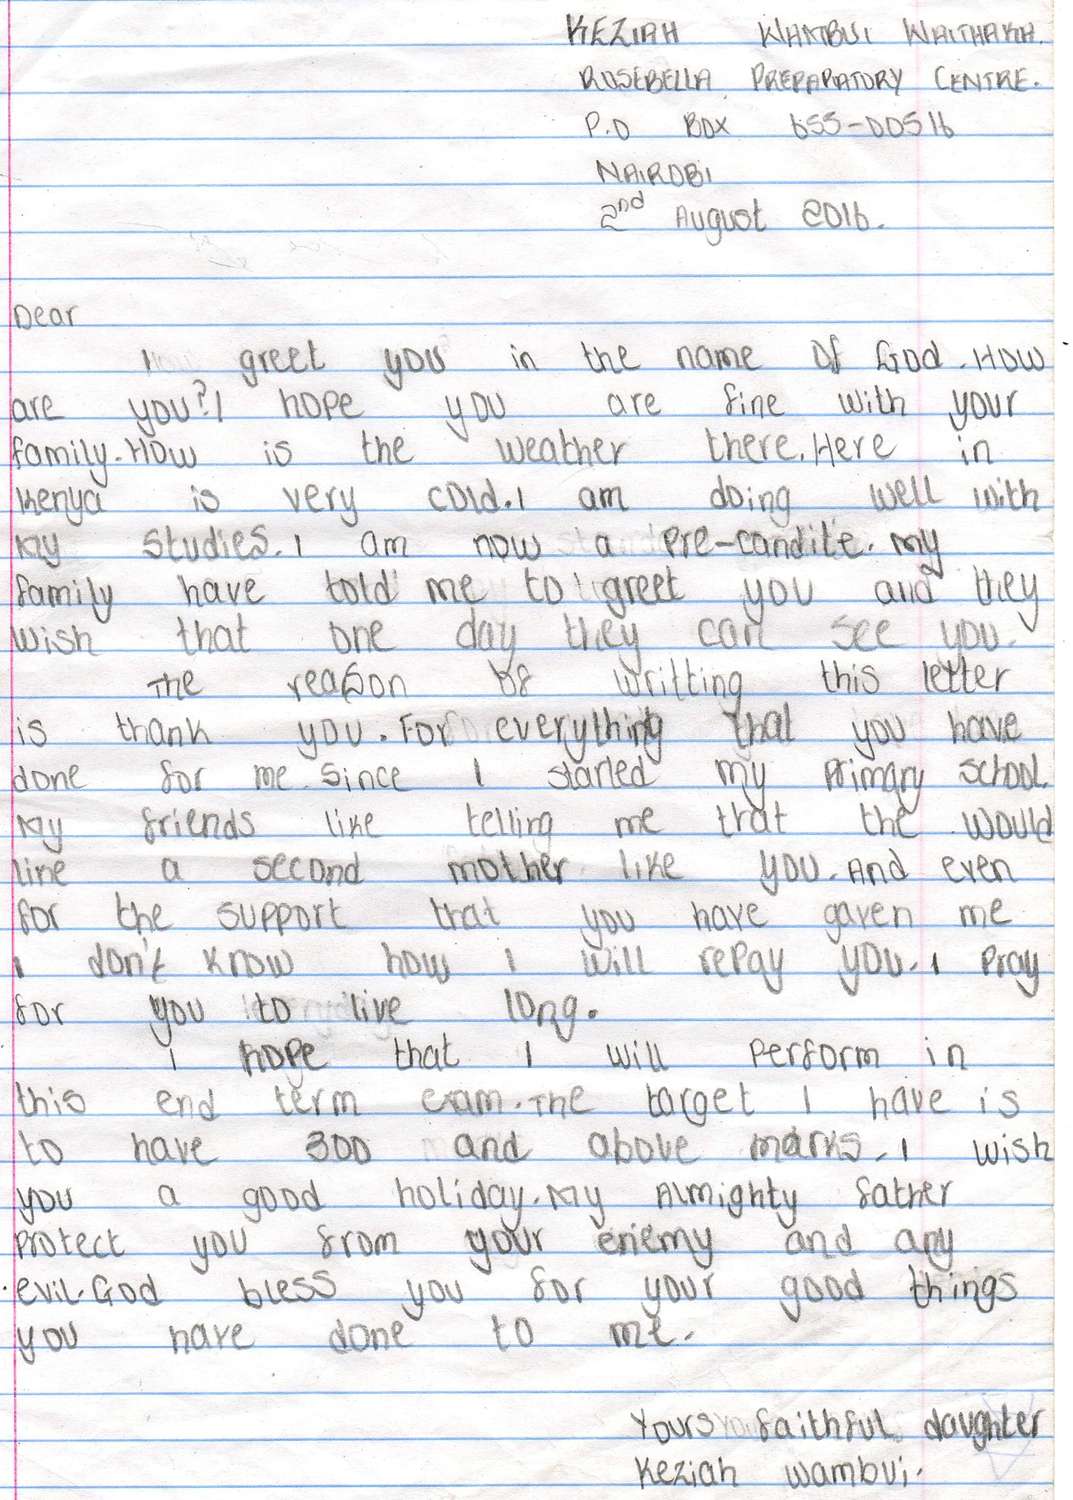 KEZIAH WAMBUI WAITHAKA.
ROSEBELLA PREPARATORY CENTRE.
P.O BOX 655-00516
NAIROBI
2nd August 2016.
Dear
I greet you in the name of God. How
are you? I hope you are fine with your
family. How is the weather there. Here in
Kenya is very cold. I am doing well with
my studies. I am now a pre-candite. My
family have told me to greet you and they
wish that one day they can see you.
The reason of writting this letter
is thank you. For everything that you have
done for me since I started my primary school.
My friends like telling me that the would
like a second mother like you. And even
for the support that you have gaven me
I don't know how I will repay you. I pray
for you to live long.
I hope that I will perform in
this end term exam. The target I have is
to have 300 and above marks. I wish
you a good holiday. My Almighty father
protect you from your enemy and any
evil. God bless you for your good things
you have done to me.
Yours faithful daughter
Keziah Wambui.